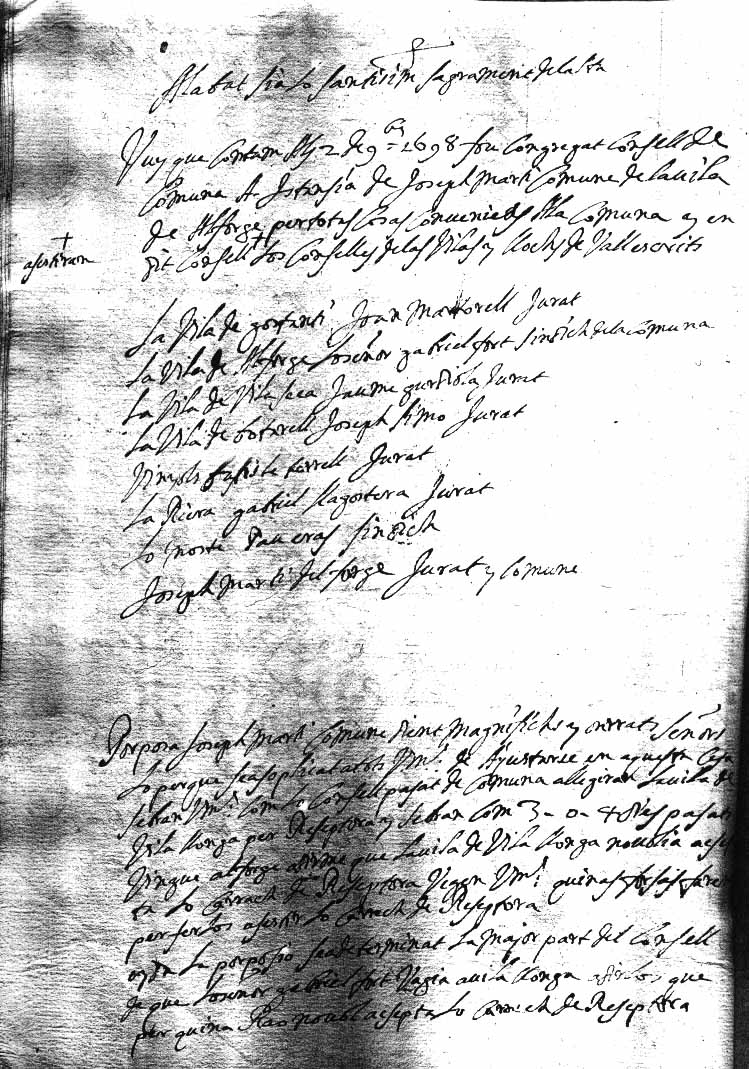 Alabat sia lo santisim sagrament de la
Vuy que Contam Als 2 de 9bre 1698 fou Congregat Consell de
Comuna A Istansia de Joseph Marti Comune de la vila
de Alforge per totas Cosas Convenients A la Comuna y en
dit Consell + los Conselles de las Vilas y llochs devall escrits
+
asistiran
La Vila de Joan Martorell Jurat
La Vila de Alforge lo señor gabriel fort sindich de la Comuna
La Vila de Vilaseca Jaume gurdiola Jurat
La Vila de botarell Joseph simo Jurat
Vinyols ferrell Jurat
La Riera gabriel llagostera Jurat
Lo Pau cras sindich
Joseph Marti de Alforge Jurat y Comune
Porposa Joseph Marti Comune dient Magnifichs y onrrats Señors
Lo perque seasoplicat atots Vms. de Ajustarse en aquesta Casa
sebran Vms. Com lo Consell pasat de Comuna allegiran la vila de
Vila llonga per Reseptora y sebran Com 3 o 4 dies pasats
Vingue alforge que la vila de Vila llonga no volia
lo Carrech de Reseptora Vegen Vms. quinas forsas
per ferlos aseptar lo Carrech de Reseptora
y en la porposisio sea determinat la Major part del Consell
de que lo señor gabriel fort Vagia a vila llonga que
per quina Rao no vol aseptar lo Carrech de Reseptora